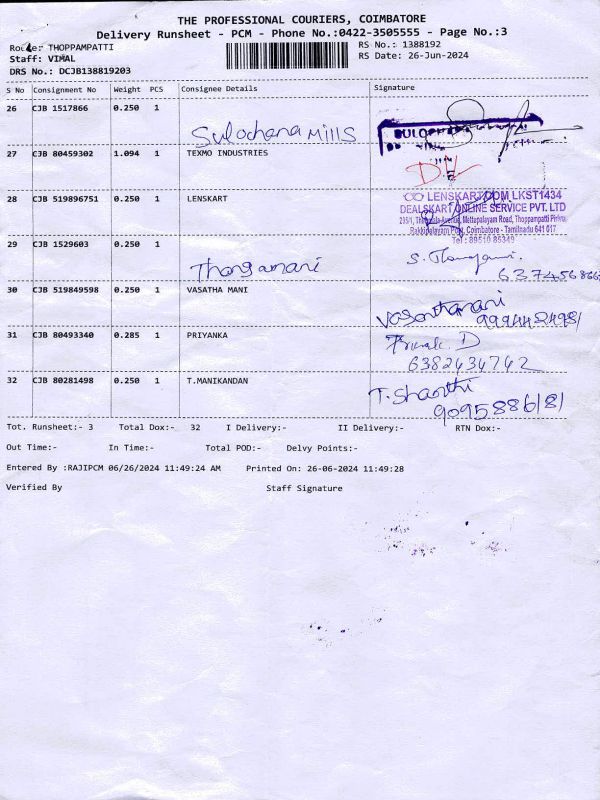 THE PROFESSIONAL COURIERS, COIMBATORE
Delivery Runsheet - PCM - Phone No.:0422-3505555 - Page No.:3
THOPPAMPATTI
RS No.: 1388192
Staff: VIMAL
RS Date: 26-Jun-2024
DRS No.: DCJB138819203
S No Consignment No Weight PCS Consignee Details Signature
26 CJB 1517866 0.250 1 Sulochana Mills
27 CJB 80459302 1.094 1 TEXMO INDUSTRIES
28 CJB 519896751 0.250 1 LENSKART
LENSKART.COM LKST1434
DEALSKART ONLINE SERVICE PVT. LTD
Mettupalayam Road, Thoppampatti Pirivu,
Rakkipalayam Post, Coimbatore - Tamilnadu 641 017
Tel : 89510 86349
29 CJB 1529603 0.250 1 Thangamani
30 CJB 519849598 0.250 1 VASATHA MANI Vasanthamani
31 CJB 80493340 0.285 1 PRIYANKA
6382434742
32 CJB 80281498 0.250 1 T.MANIKANDAN T. Shanthi
9095886181
Tot. Runsheet:- 3 Total Dox:- 32 I Delivery:- II Delivery:- RTN Dox:-
Out Time:- In Time:- Total POD:- Delvy Points:-
Entered By :RAJIPCM 06/26/2024 11:49:24 AM Printed On: 26-06-2024 11:49:28
Verified By Staff Signature